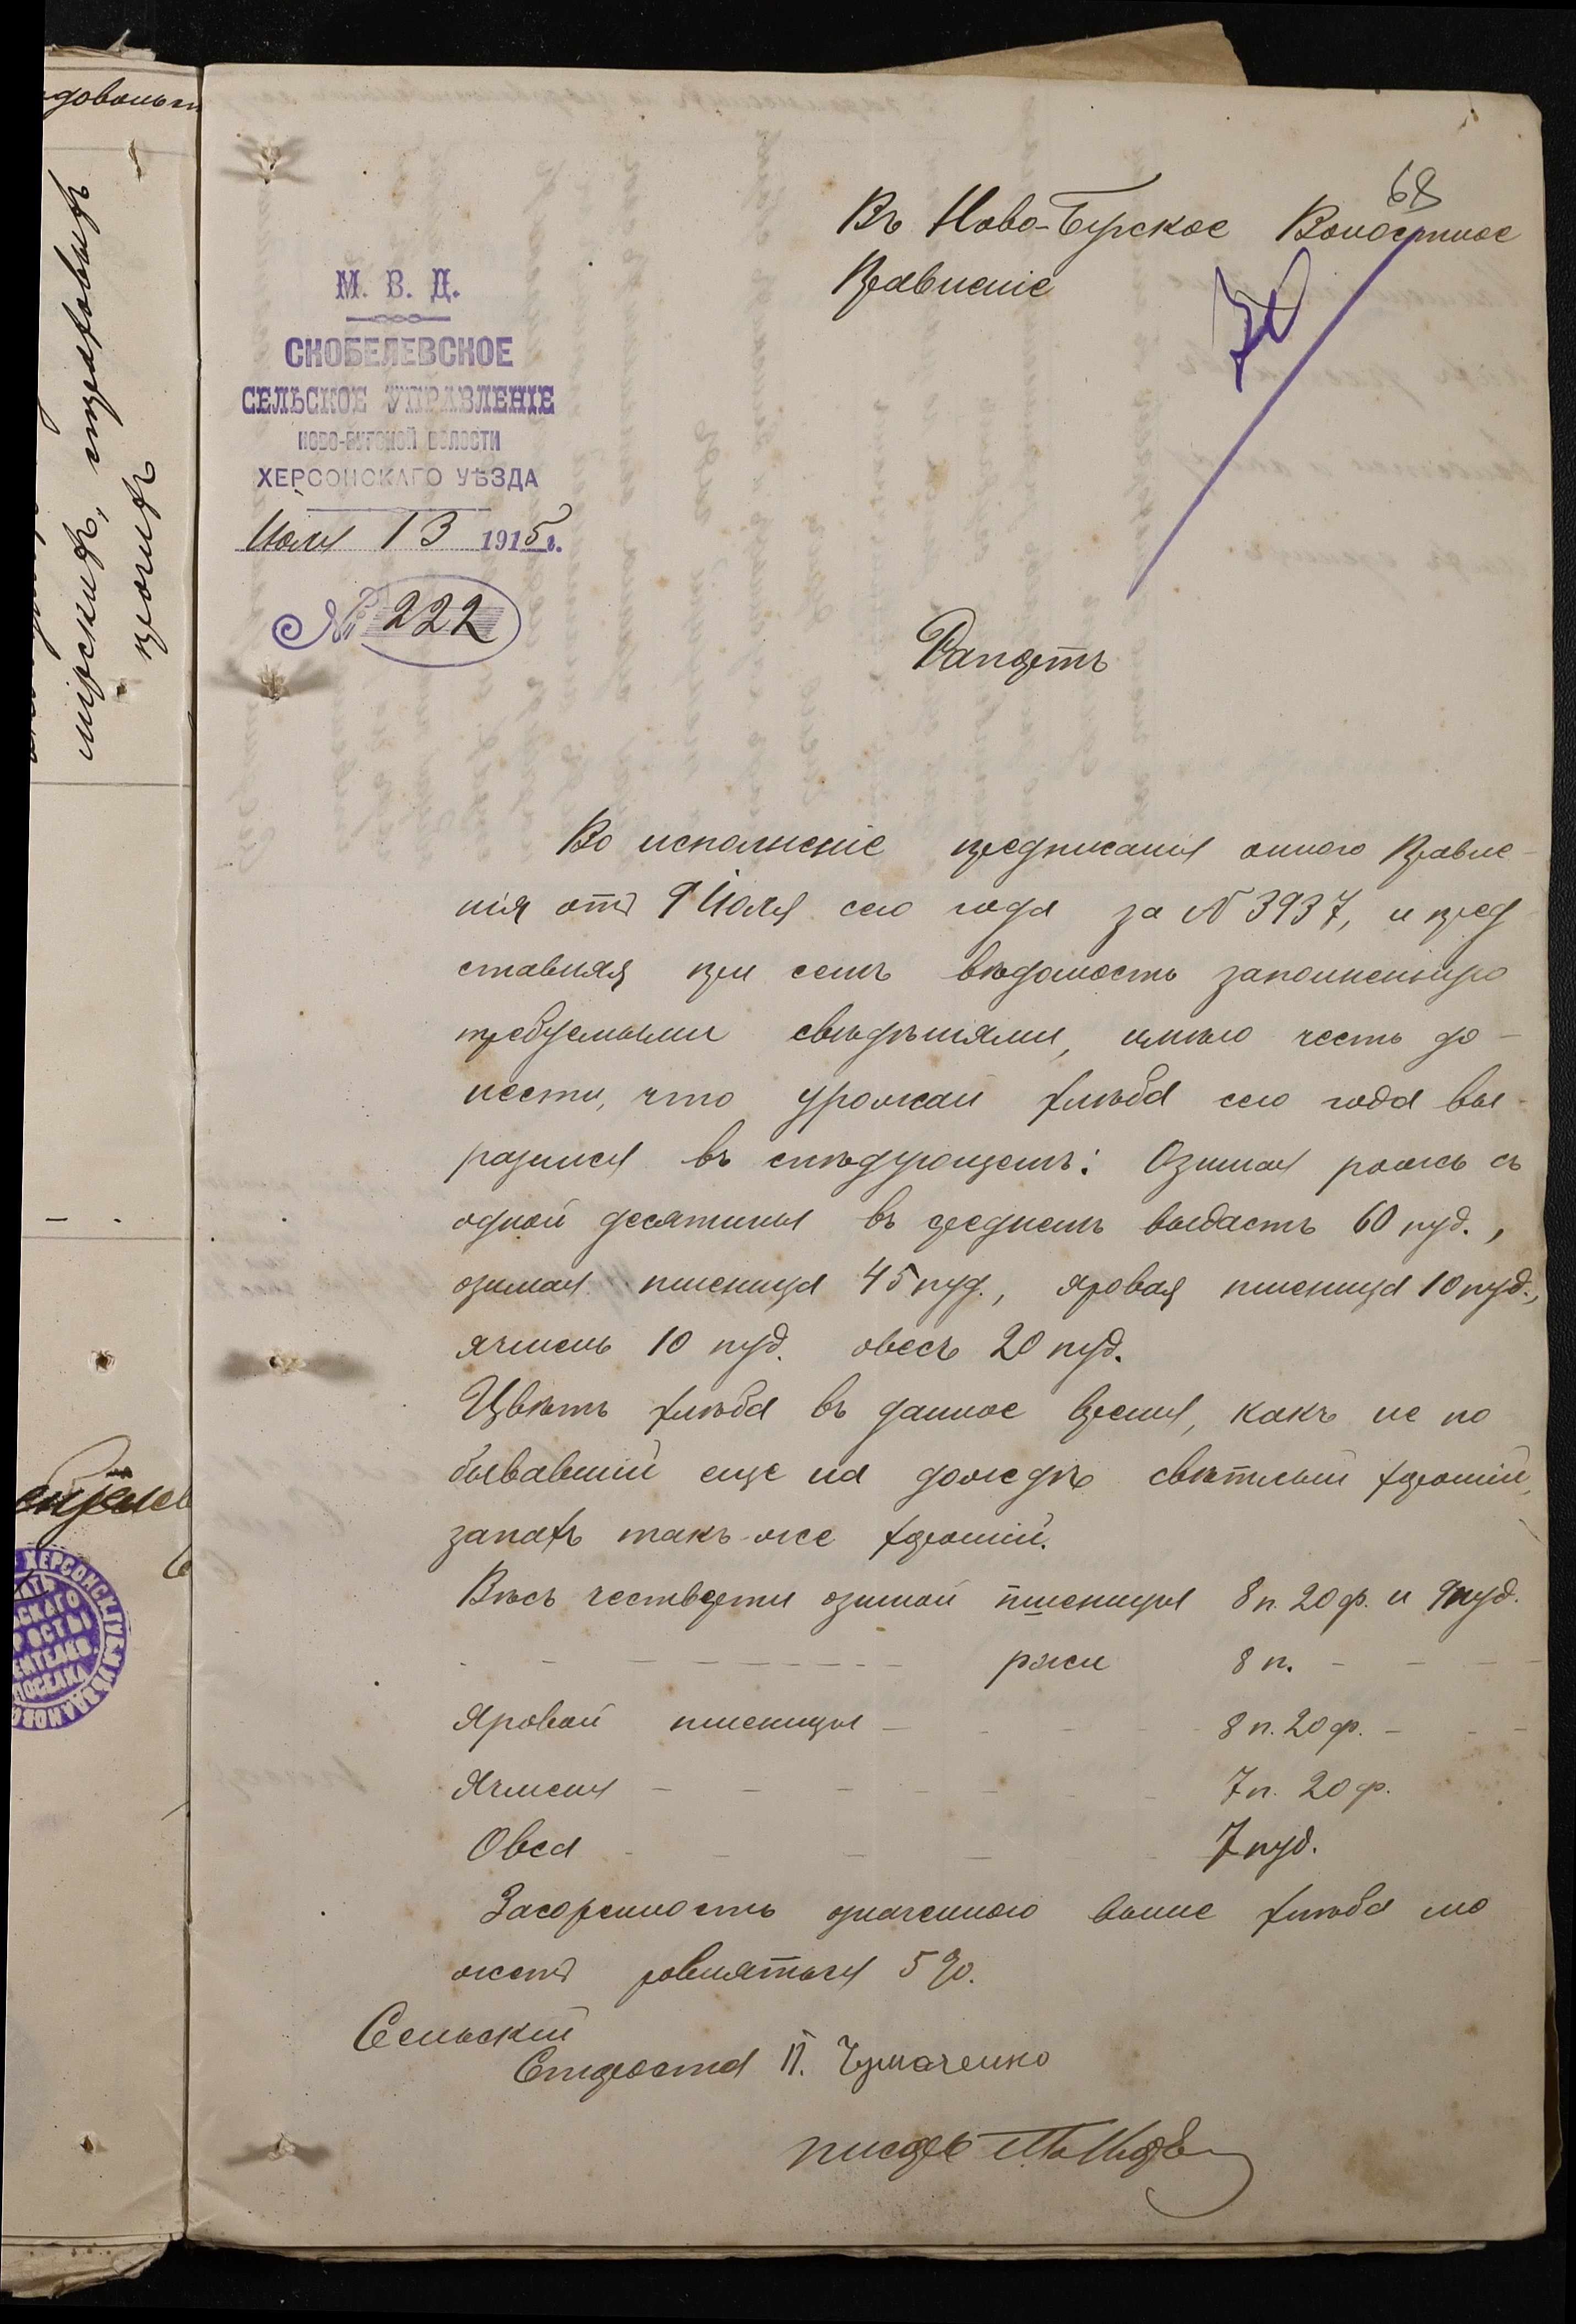 68
Въ Ново-Бугское Волостное
Правленіе
М. В. Д.
СКОБЕЛЕВСКОЕ
СЕЛЬСКОЕ УПРАВЛЕНІЕ
НОВО-БУГСКОЙ ВОЛОСТИ
ХЕРСОНСКАГО УѢЗДА
Іюля 13 1915 г.
№ 222
Рапортъ
Во исполненіе предписанія оного Правле-
нія отъ 9 Іюля сего года за № 3937, и пред
ставляя при семъ вѣдомость заполненную
требуемыми свѣдѣніями, имѣю честь до-
нести, что урожай хлѣба сего года вы-
разился въ слѣдующемъ: Озимая рожь съ
одной десятины въ среднемъ выдастъ 60 пуд.,
озимая пшеница 45 пуд., яровая пшеница 10 пуд.,
ячмень 10 пуд. овесъ 20 пуд.
Цвѣтъ хлѣба въ данное время, какъ не по
бывавшій еще на дождѣ свѣтлый хорошій,
запахъ такъ-же хорошій.
Вѣсъ четверти озимой пшеницы 8 п. 20 ф. и 9 пуд.
- - - - - - - - - ржи 8 п. - - -
Яровой пшеницы - - - - 8 п. 20 ф. - - -
Ячменя - - - - - - - 7 п. 20 ф.
Овса - - - - - 7 пуд.
Засоренность означенного выше хлѣба мо
жетъ ровняться 5%.
Сельскій
Староста П. Чумаченко
писарь
довольст
мірскихъ, страховыхъ
прочихъ